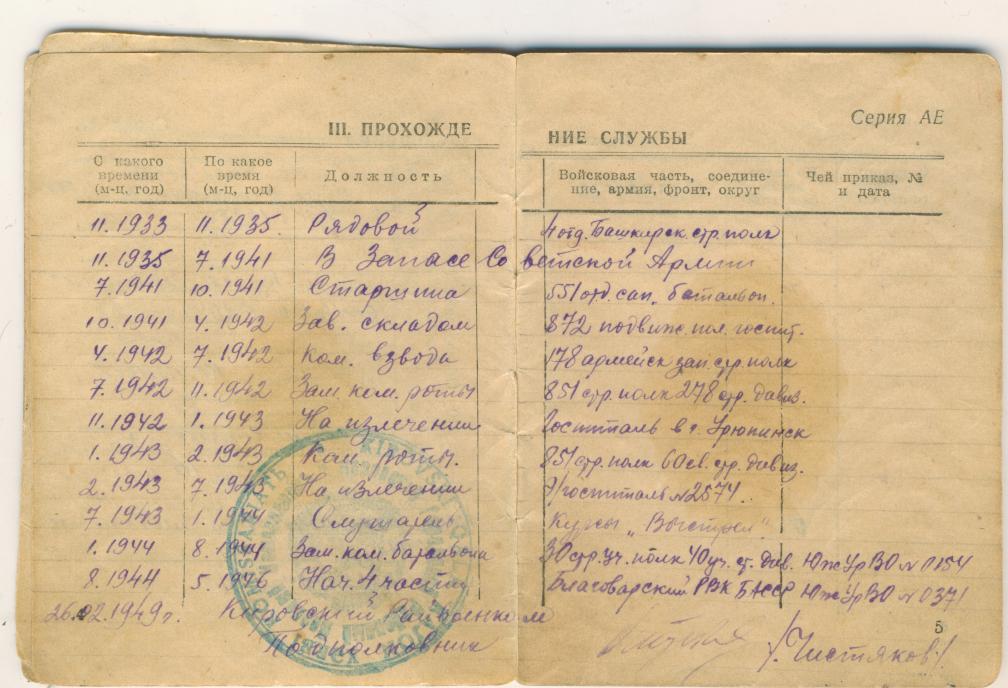 Серия АЕ
III. ПРОХОЖДЕ НИЕ СЛУЖБЫ
С какого времени (м-ц, год) По какое время (м-ц, год) Должность Войсковая часть, соединение, армия, фронт, округ Чей приказ, № и дата
11.1933 11.1935. Рядовой 4 отд. Башкирск. стр. полк
11.1935 7.1941 В Запасе Советской Армии
7.1941 10.1941 Старшина 551 отд. сап. батальон.
10.1941 4.1942 Зав. складом 872 подвиж. пол. госпит.
4.1942 7.1942 Ком. взвода 178 армейск зап. стр. полк
7.1942 11.1942 Зам. ком. роты 851 стр. полк 278 стр. дивиз.
11.1942 1.1943 На излечении Госпиталь в г. Урюпинск
1.1943 2.1943 Ком. роты. 851 стр. полк 60 гв. стр. дивиз.
2.1943 7.1943 На излечении Э/госпиталь №2574.
7.1943 1.1944 Слушатель Курсы „Выстрел"
1.1944 8.1944 Зам. ком. батальона 30 стр. уч. полк 40 уч. ст. див. ЮжУрВО № 0154
8.1944 5.1946 Нач. 4 части Благоварский РВК БАССР ЮжУрВО № 0371
26.02.1949 г. Кировский Райвоенком
Подполковник /Чистяков/.
5